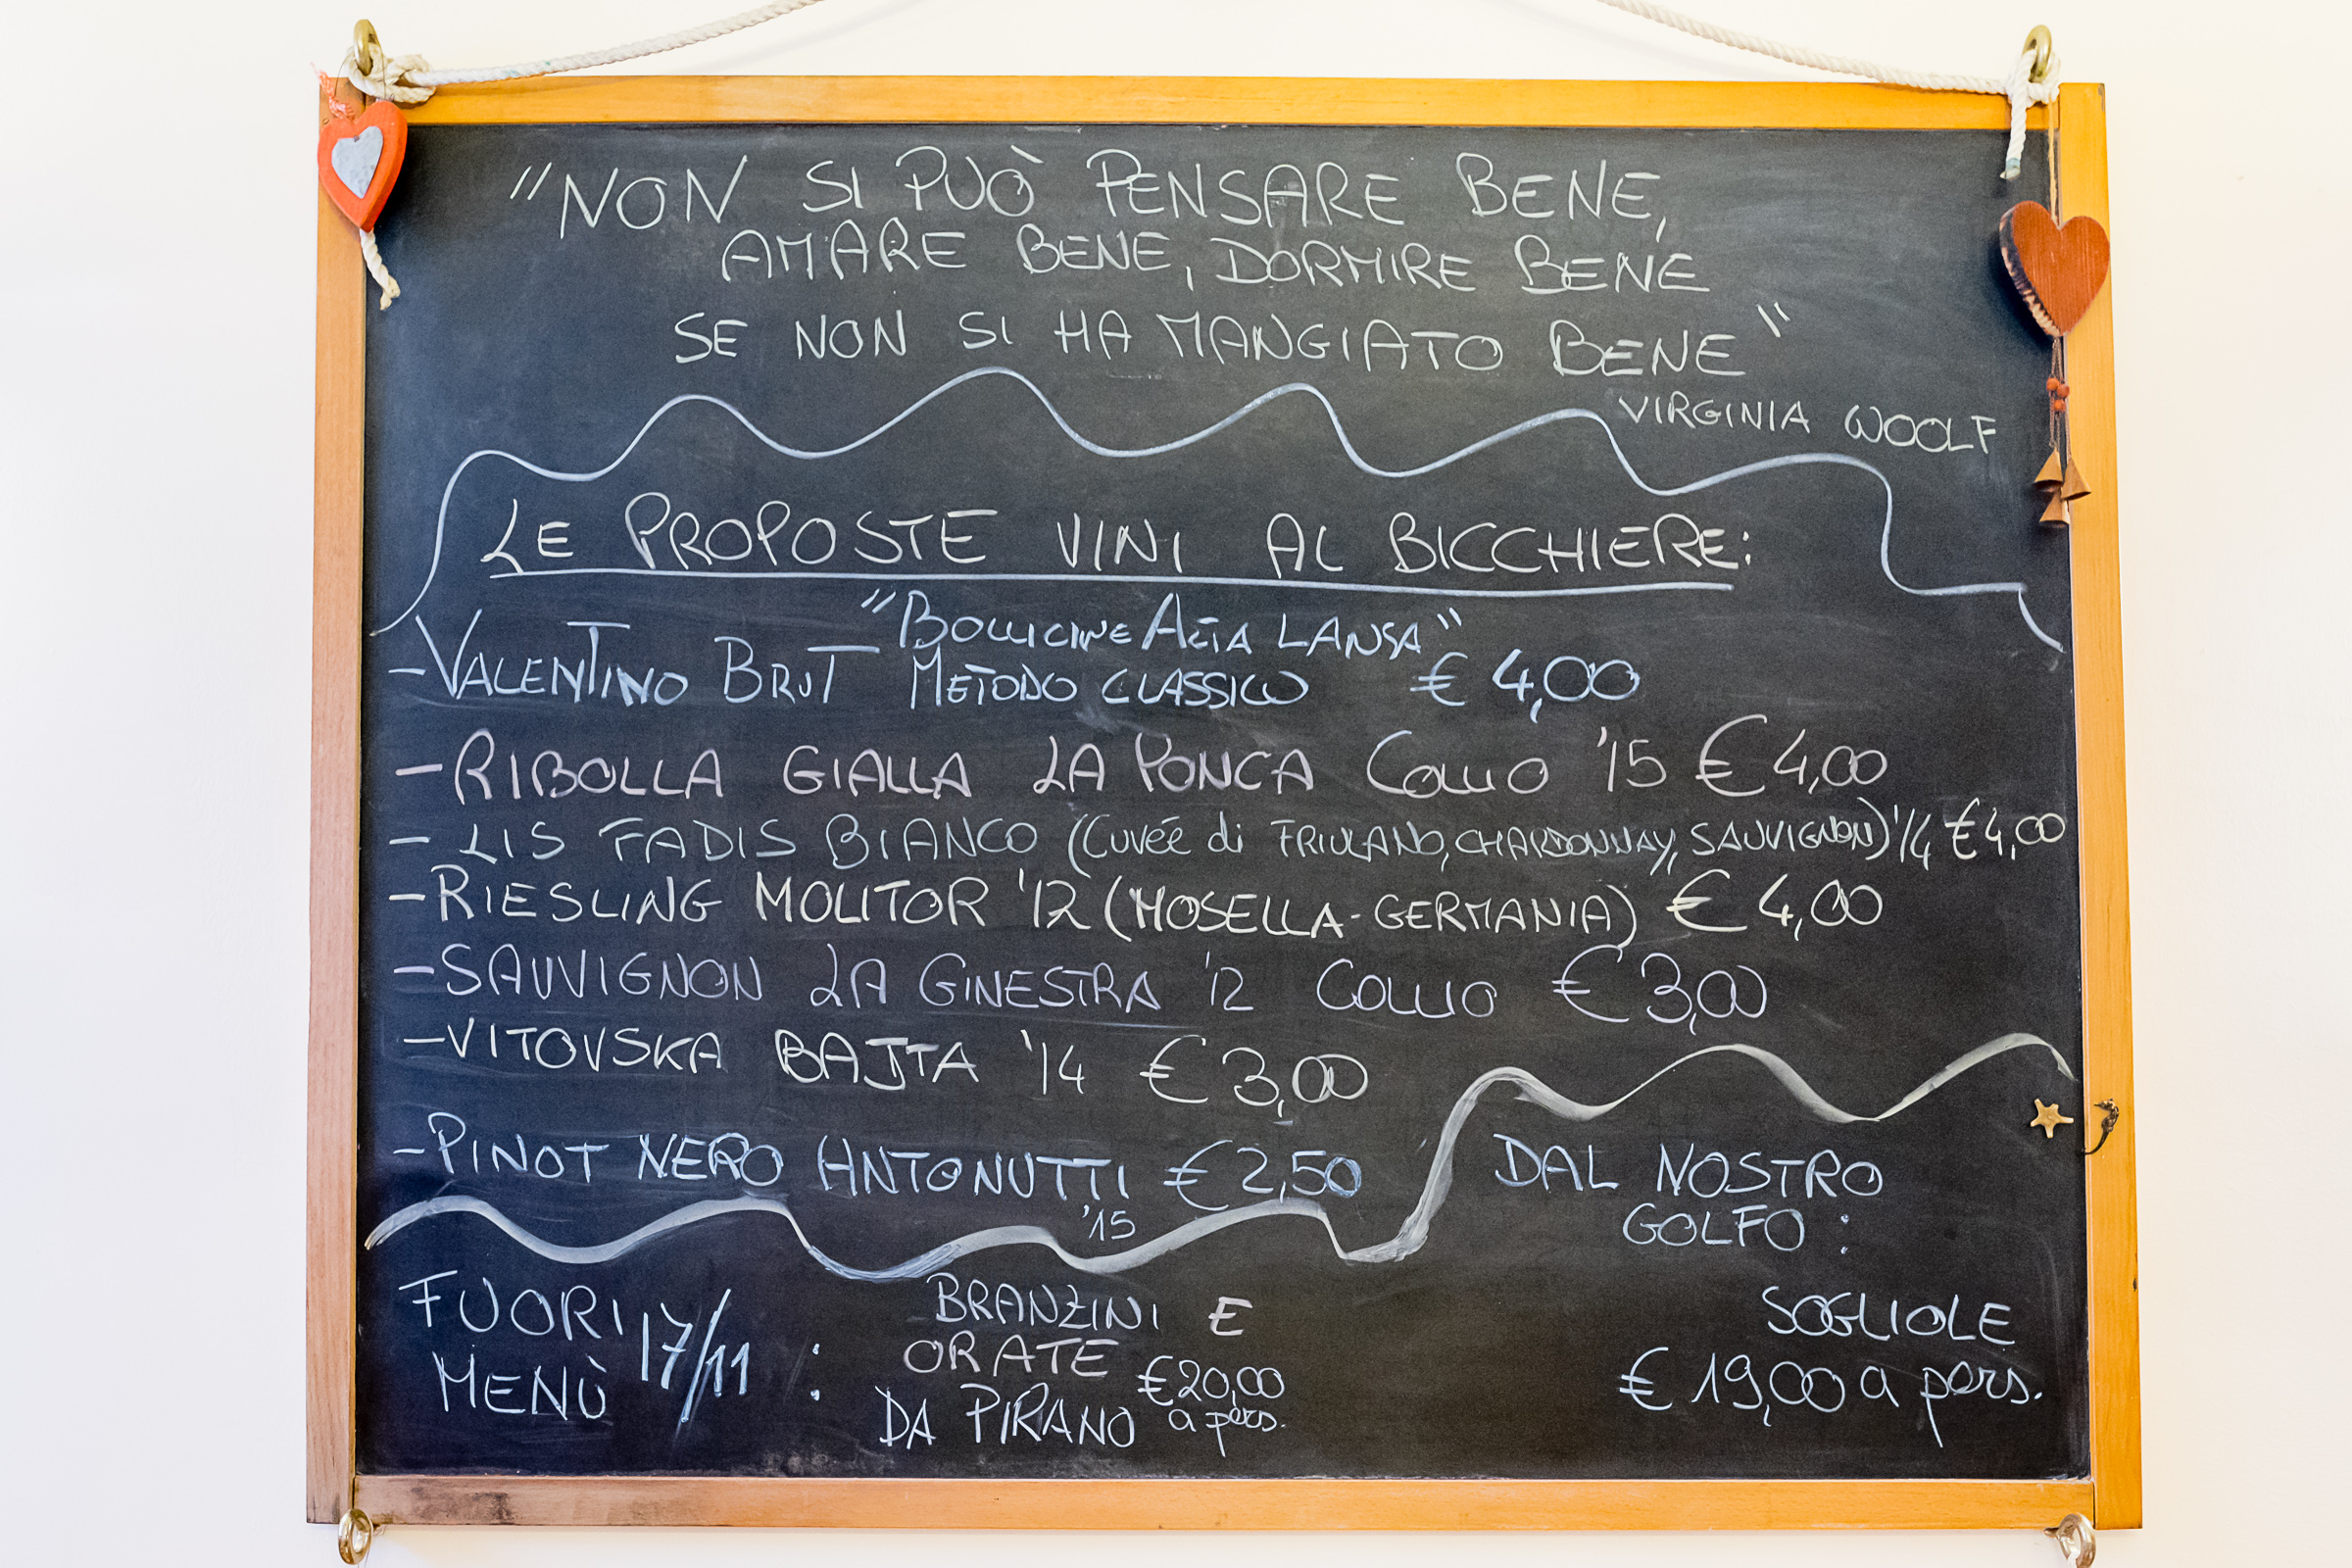 "NON SI PUÒ PENSARE BENE,
AMARE BENE, DORMIRE BENE
SE NON SI HA MANGIATO BENE"
VIRGINIA WOOLF
LE PROPOSTE VINI AL BICCHIERE:
"BOLLICINE ALTA LANGA"
-VALENTINO BRUT METODO CLASSICO € 4,00
-RIBOLLA GIALLA LA PONCA COLLIO '15 € 4,00
- LIS FADIS BIANCO (Cuvée di FRIULANO, CHARDONNAY, SAUVIGNON) '14 € 4,00
-RIESLING MOLITOR '12 (MOSELLA-GERMANIA) € 4,00
-SAUVIGNON LA GINESTRA '12 COLLIO € 3,00
-VITOVSKA BAJTA '14 € 3,00
-PINOT NERO ANTONUTTI € 2,50
'15
DAL NOSTRO
GOLFO:
SOGLIOLE
€ 19,00 a pers.
FUORI
MENÙ 17/11 :
BRANZINI E
ORATE
DA PIRANO
€ 20,00
a pers.